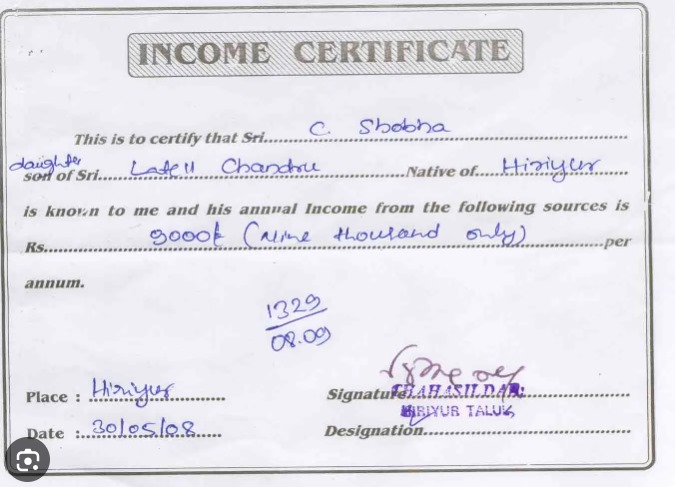 INCOME CERTIFICATE
This is to certify that Sri. C. Shobha
daughter
son of Sri. Late || Chandru Native of. Hiriyur
is known to me and his annual Income from the following sources is
Rs. 9000/- (Nine thousand only) per
annum.
1329
08.09
Place : Hiriyur
Signature THAHASILDAR
HIRIYUR TALUK
Date : 30/05/08
Designation.